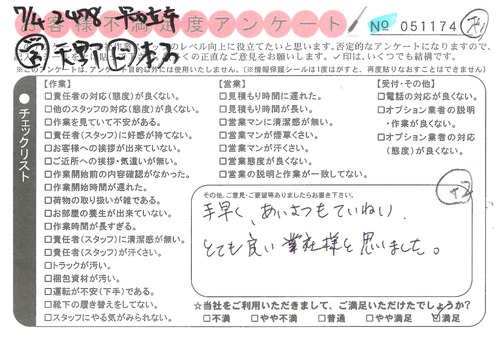 7/4 2478
お客様不満足度アンケート No 051174
レベル向上に役立てたいと思います。否定的なアンケートになりますので、
くの正直なご意見をお願いします。✓印は、いくつでも結構です。
※このアンケートは、アンケート目的以外には使用いたしません。(※情報保護シールは1度はがすと、再度貼りなおすことはできません)
チェックリスト
【作業】
□責任者の対応(態度)が良くない。
□他のスタッフの対応(態度)が良くない。
□作業を見ていて不安がある。
□責任者(スタッフ)に好感が持てない。
□お客様への挨拶が出来ていない。
□ご近所への挨拶・気遣いが無い。
□作業開始前の内容確認がなかった。
□作業開始時間が遅れた。
□荷物の取り扱いが雑である。
□お部屋の養生が出来ていない。
□作業時間が長すぎる。
□責任者(スタッフ)に清潔感が無い。
□責任者(スタッフ)が汗くさい。
□トラックが汚い。
□梱包資材が汚い。
□運転が不安(下手)である。
□靴下の履き替えをしてない。
□スタッフにやる気がみられない。
【営業】
□見積もり時間に遅れた。
□見積もり時間が長い。
□営業マンに清潔感が無い。
□営業マンが煙草くさい。
□営業マンが汗くさい。
□営業態度が良くない。
□営業の説明と作業が一致してない。
【受付・その他】
□電話の対応が良くない。
□オプション業者の説明
・作業が良くない。
□オプション業者の対応
(態度)が良くない。
その他、ご意見・ご要望等ありましたらお書き下さい。
+2
手早く、あいさつもていねい、
とても良い業社様と思いました。
☆当社をご利用いただきまして、ご満足いただけたでしょうか?
□不満 □やや不満 □普通 □やや満足 ☑満足